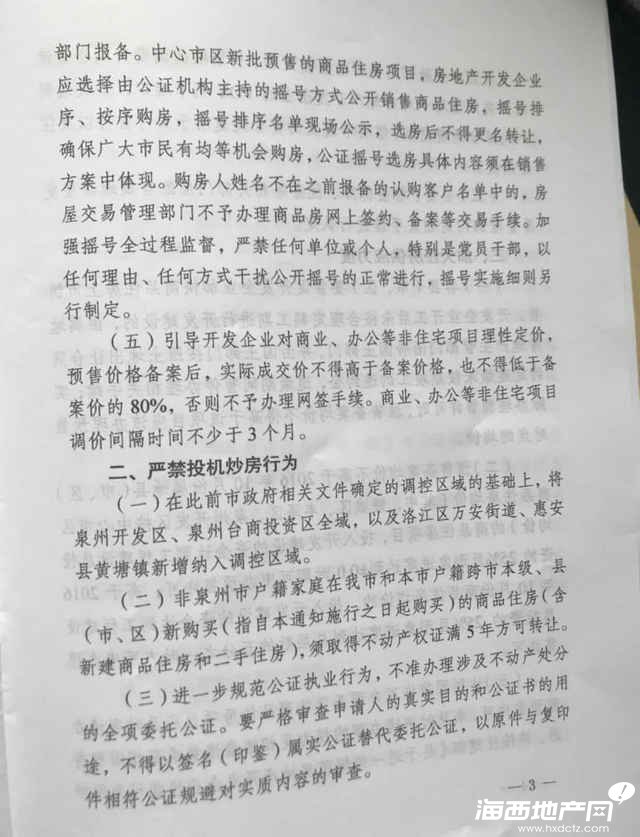 部门报备。中心市区新批预售的商品住房项目，房地产开发企业
应选择由公证机构主持的摇号方式公开销售商品住房，摇号排
序、按序购房，摇号排序名单现场公示，选房后不得更名转让，
确保广大市民有均等机会购房，公证摇号选房具体内容须在销售
方案中体现。购房人姓名不在之前报备的认购客户名单中的，房
屋交易管理部门不予办理商品房网上签约、备案等交易手续。加
强摇号全过程监督，严禁任何单位或个人，特别是党员干部，以
任何理由、任何方式干扰公开摇号的正常进行，摇号实施细则另
行制定。
（五）引导开发企业对商业、办公等非住宅项目理性定价，
预售价格备案后，实际成交价不得高于备案价格，也不得低于备
案价的80%，否则不予办理网签手续。商业、办公等非住宅项目
调价间隔时间不少于3个月。
二、严禁投机炒房行为
（一）在此前市政府相关文件确定的调控区域的基础上，将
泉州开发区、泉州台商投资区全域，以及洛江区万安街道、惠安
县黄塘镇新增纳入调控区域。
（二）非泉州市户籍家庭在我市和本市户籍跨市本级、县
（市、区）新购买（指自本通知施行之日起购买）的商品住房（含
新建商品住房和二手住房），须取得不动产权证满5年方可转让。
（三）进一步规范公证执业行为，不准办理涉及不动产处分
的全项委托公证。要严格审查申请人的真实目的和公证书的用
途，不得以签名（印鉴）属实公证替代委托公证，以原件与复印
件相符公证规避对实质内容的审查。
— 3 —
海西地产网!
www.hxdctz.com